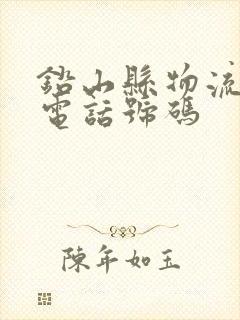 鉛山縣物流
電話號碼
陳年如玉